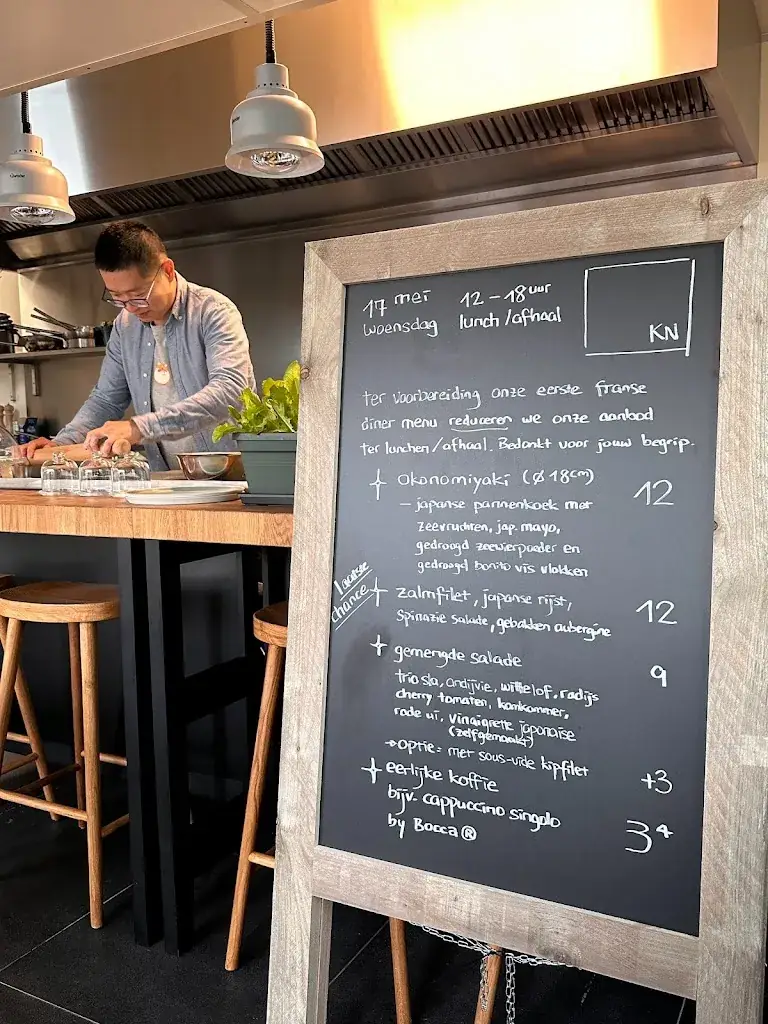 17 mei 12-18 uur
woensdag lunch/afhaal
KN
ter voorbereiding onze eerste franse
diner menu reduceren we onze aanbod
ter lunchen/afhaal. Bedankt voor jouw begrip.
okonomiyaki (ø 18cm) 12
- japanse pannenkoek met
zeevruchten, jap. mayo,
gedroogd zeewierpoeder en
gedroogd bonito vis vlokken
laatste
chance
zalmfilet, japanse rijst, 12
spinazie salade, gebakken aubergine
gemengde salade 9
trio sla, andijvie, witte lof, radijs
cherry tomaten, komkommer,
rode ui, vinaigrette japonaise
(zelfgemaakt)
→ optie: met sous-vide kipfilet +3
eerlijke koffie
bijv. cappuccino singolo 3⁴
by Bocca®